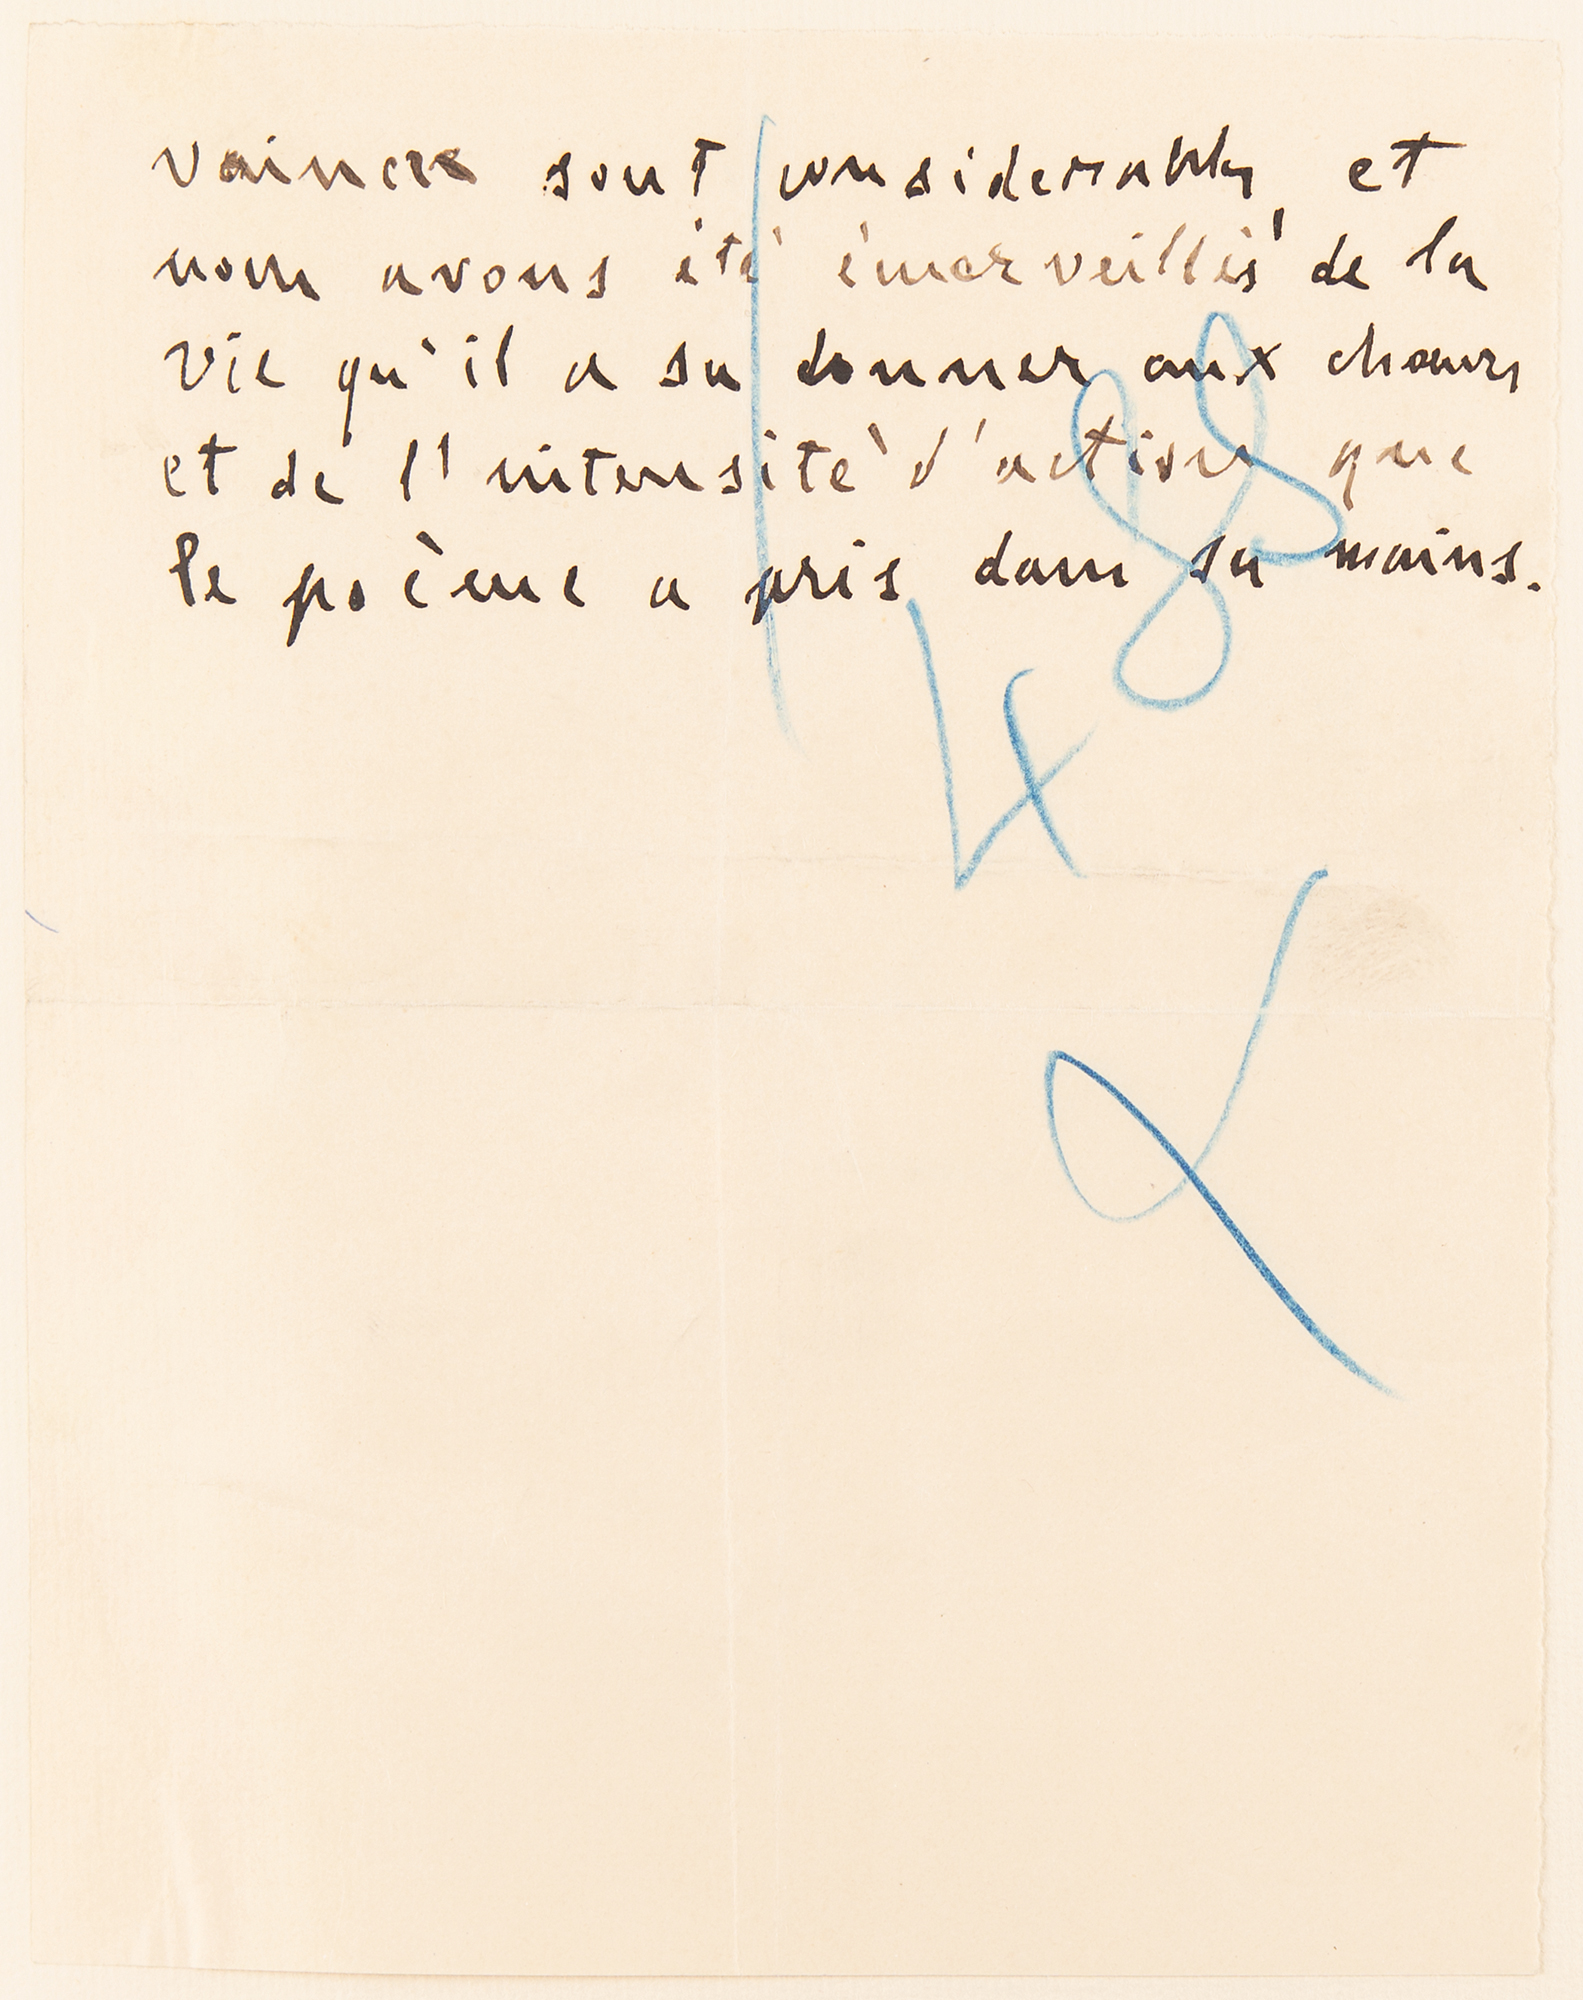 vaincre sont considerables et
nous avons été émerveillés de la
vie qu'il a su donner aux chœurs
et de l'intensité d'action que
le poème a pris dans sa mains.